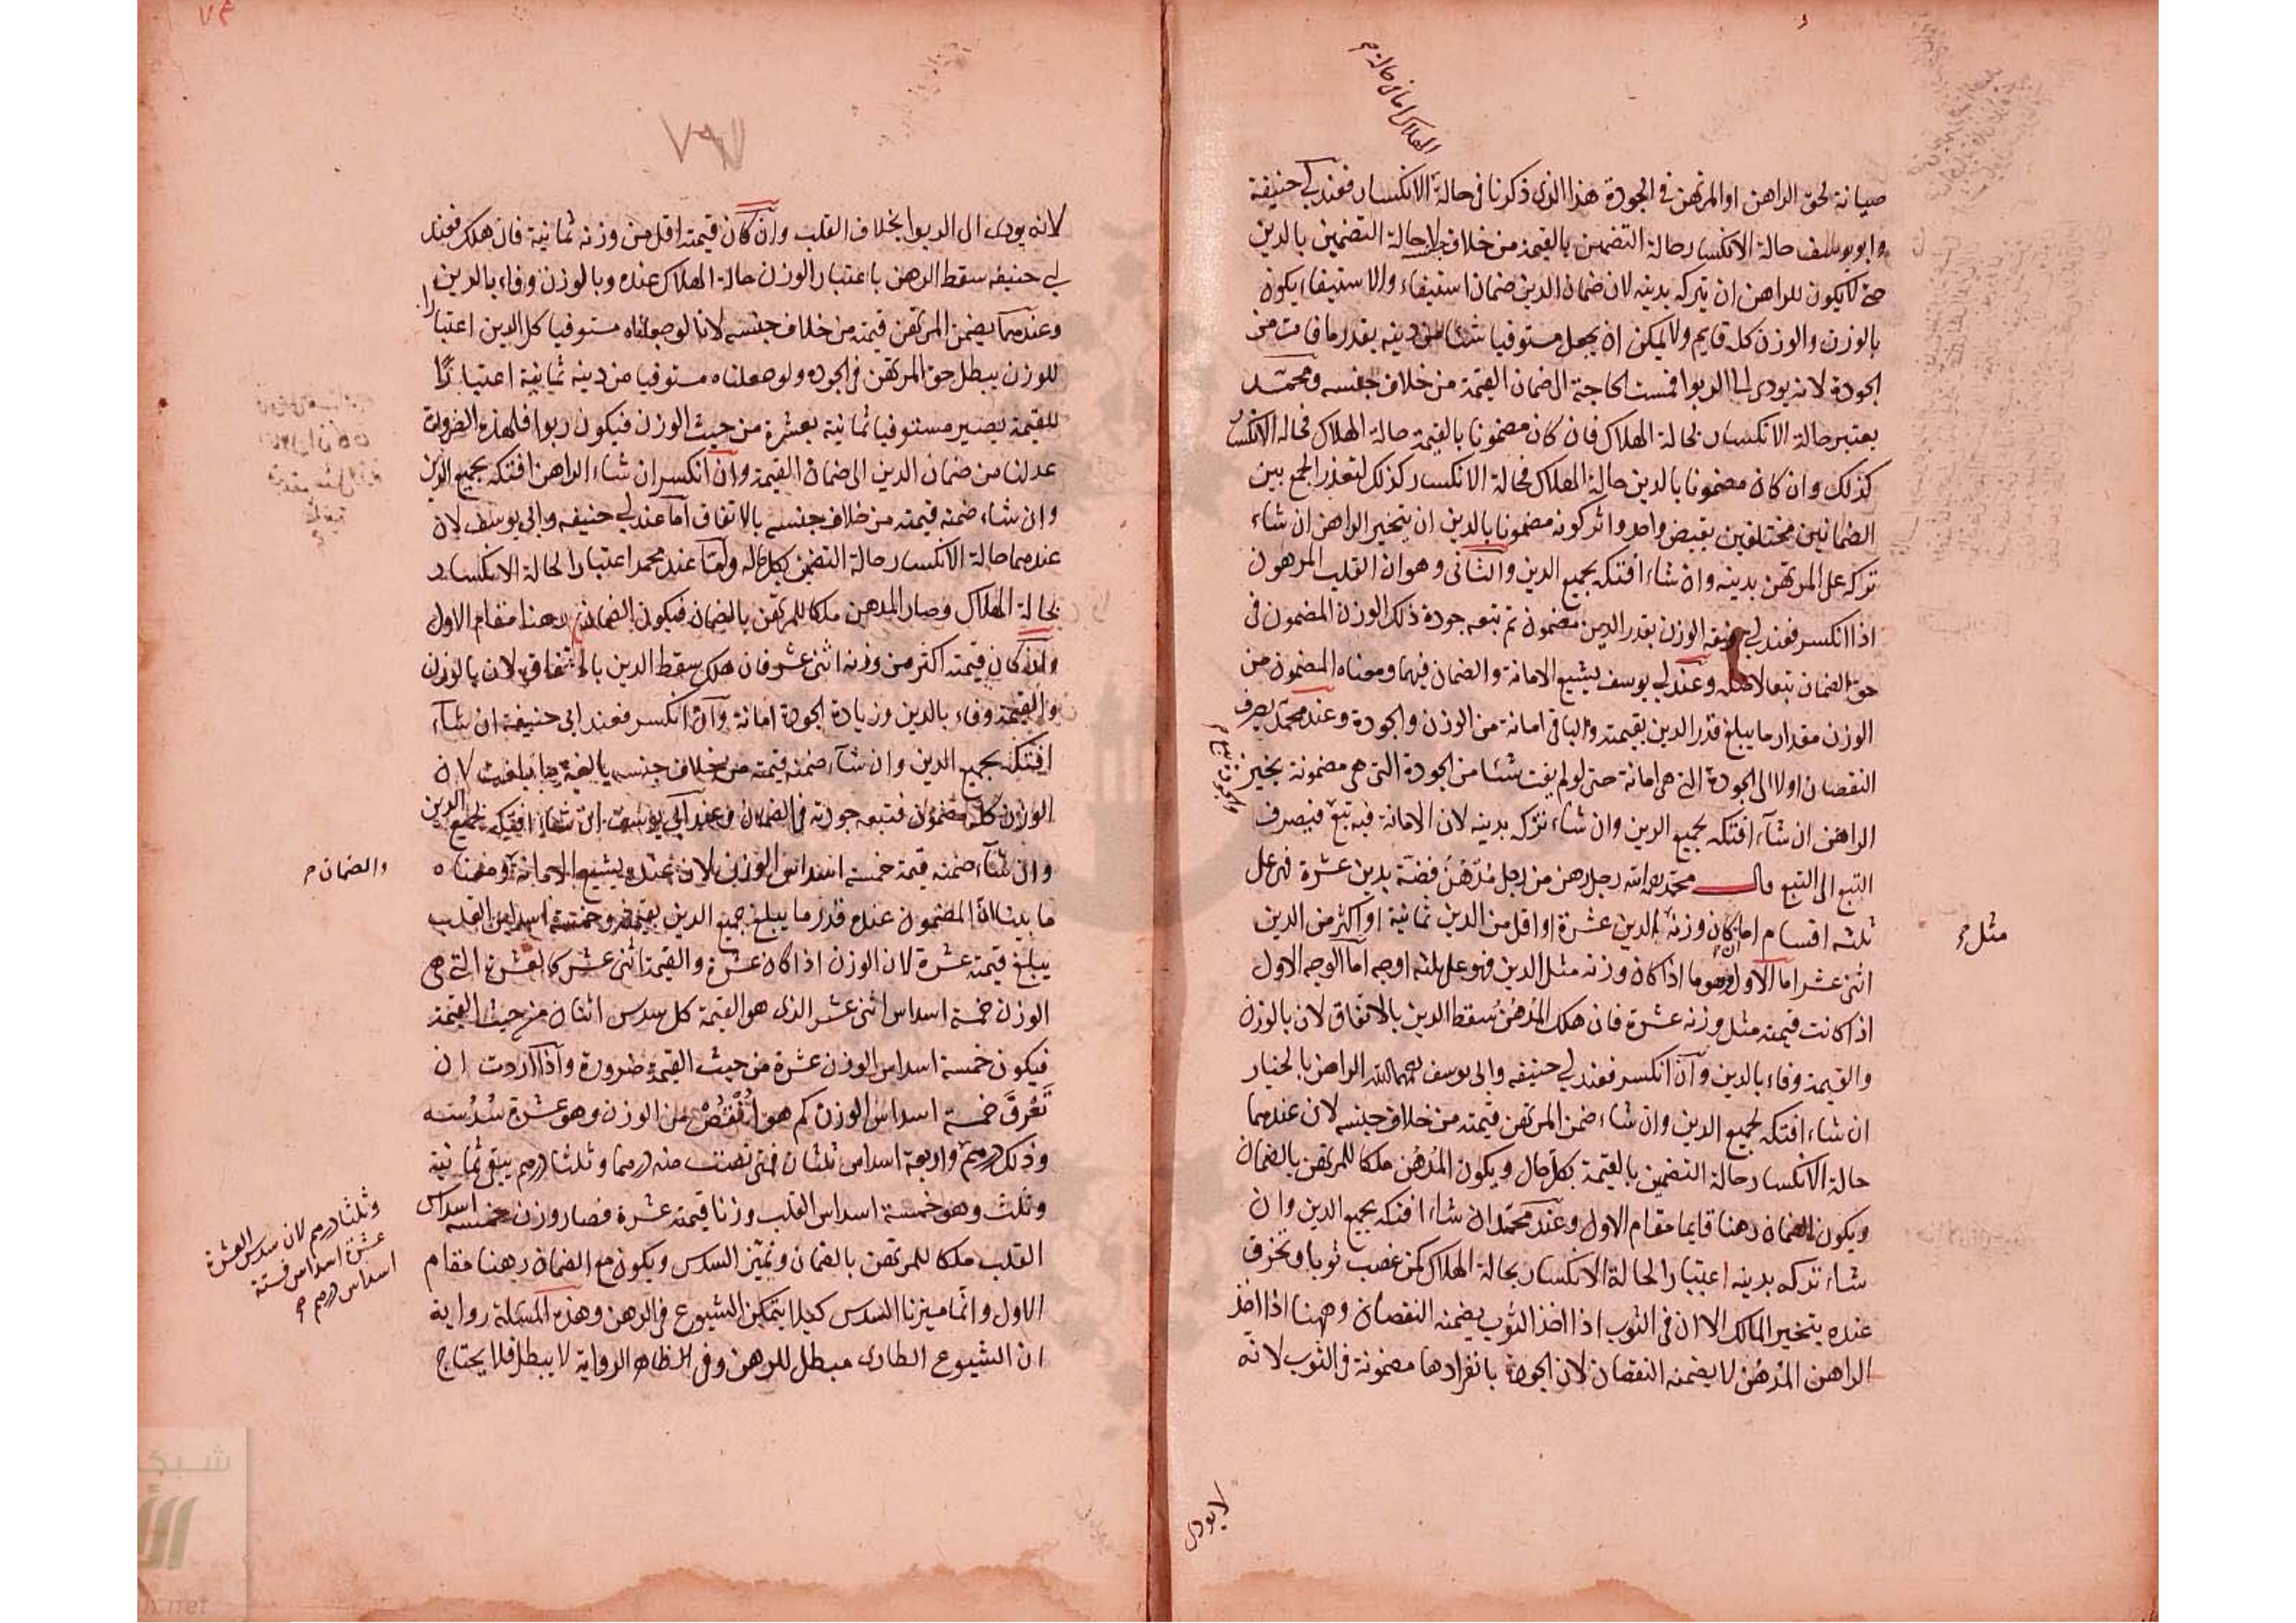 الهلاك اما فى حالة
صيانة لحق الراهن او المرتهن فى الجودة هذا الذى ذكرنا فى حالة الانكسار فعند ابي حنيفة
وابو يوسف حالة الانكسار حالة التضمين بالقيمة من خلاف جنسه لا حالة التضمين بالدين
حتى لا يكون للراهن ان يتركه بدينه لان ضمان الدين ضمان استيفاء والاستيفاء يكون
بالوزن والوزن كله قايم ولا يمكن ان يجعل مستوفيا شئا من دينه بقدر ما فات من
الجودة لانه يودى الى الربوا فمست الحاجة الى ضمان القيمة من خلاف جنسه ومحمد
يعتبر حالة الانكسار بحالة الهلاك فان كان مضمونا بالقيمة حالة الهلاك فحالة الانكسار
كذلك وان كان مضمونا بالدين حالة الهلاك فحالة الانكسار كذلك لتعذر الجمع بين
الضمانين مختلفين بقبض واحد واثر كونه مضمونا بالدين ان يتخير الراهن ان شاء
تركه على المرتهن بدينه وان شاء افتكه بجميع الدين والثانى وهو ان القلب المرهون
اذا انكسر فعند ابي حنيفه الوزن بقدر الدين مضمون ثم تتبعه جودة ذلك الوزن المضمون فى
حق الضمان تبعا لاصله وعند ابي يوسف يشيع الامانة والضمان فيهما ومعناه المضمون من
الوزن مقدار ما يبلغ قدر الدين بقيمته والباقى امانة من الوزن والجودة وعند محمد يصرف
النقصان اولا الى الجودة التى هى امانة حتى لو لم يفت شئا من الجودة التى هى مضمونة يخير
الراهن ان شاء افتكه بجميع الدين وان شاء تركه بدينه لان الامانة فيه تبع فيصرف
التبع الى التبع قال محمد رحمه الله رجل رهن من رجل قلب فضة بدين عشرة فهى على
ثلثه اقسام اما ان كان وزنه الدين عشرة او اقل من الدين ثمانية او اكثر من الدين
مثل
اثنى عشر اما الاول وهو ما اذا كان وزنه مثل الدين فهو على ثلثه اوجه اما الوجه الاول
اذا كانت قيمته مثل وزنه عشرة فان هلك الرهن سقط الدين بالاتفاق لان بالوزن
والقيمة وفاء بالدين وان انكسر فعند ابي حنيفه وابى يوسف رحمهما الله الراهن بالخيار
ان شاء افتكه بجميع الدين وان شاء ضمن المرتهن قيمته من خلاف جنسه لان عندهما
حالة الانكسار حالة التضمين بالقيمة بكل حال ويكون الرهن ملكا للمرتهن بالضمان
ويكون الضمان رهنا قايما مقام الاول وعند محمد ان شاء افتكه بجميع الدين وان
شاء تركه بدينه اعتبارا لحالة الانكسار بحالة الهلاك كمن غصب ثوبا وتخرق
عنده يتخير المالك الا ان فى الثوب اذا اخذ الثوب يضمنه النقصان وههنا اذا اخذ
الراهن الرهن لا يضمنه النقصان لان الجودة بانفرادها مضمونة فى الثوب لانه
لا يودى
لانه يودى الى الربوا بخلاف القلب وان كان قيمته اقل من وزنه ثمانية فان هلك فعند
ابي حنيفه سقط الرهن باعتبار الوزن حالة الهلاك عنده وبالوزن وفاء بالدين
وعندهما يضمن المرتهن قيمته من خلاف جنسه لانا لو جعلناه مستوفيا كل الدين اعتبارا
للوزن يبطل حق المرتهن فى الجوده ولو جعلناه مستوفيا من دينه ثمانية اعتبارا
للقيمة يصير مستوفيا ثمانية بعشرة من حيث الوزن فيكون ربوا فلهذه الضرورة
عدلنا من ضمان الدين الى ضمان القيمة وان انكسر ان شاء الراهن افتكه بجميع الدين
وان شاء ضمنه قيمته من خلاف جنسه بالاتفاق اما عند ابي حنيفه وابى يوسف لان
عندهما حالة الانكسار حالة التضمين بكل حال واما عند محمد اعتبارا لحالة الانكسار
بحالة الهلاك وصار الرهن ملكا للمرتهن بالضمان فيكون الضمان رهنا مقام الاول
وان كان قيمته اكثر من وزنه اثنى عشر فان هلك سقط الدين بالاتفاق لان بالوزن
والقيمة وفاء بالدين وزيادة الجودة امانة وان انكسر فعند ابى حنيفة ان شاء
افتكه بجميع الدين وان شاء ضمنه قيمته من خلاف جنسه بالغة ما بلغت لان
الوزن كله مضمون فتتبعه جودته فى الضمان وعند ابى يوسف ان شاء افتكه بجميع الدين
وان شاء ضمنه قيمة خمسة اسداس الوزن لان عنده يشيع الامانة ومعناه
والضمان
ما بينا ان المضمون عنده قدر ما يبلغ جميع الدين بقيمته وخمسة اسداس القلب
يبلغ قيمته عشرة لان الوزن اذا كان عشرة والقيمة اثنى عشر كالعشرة التى هى
الوزن خمسة اسداس اثنى عشر الذى هو القيمة كل سدس اثنان من حيث القيمة
فيكون خمسة اسداس الوزن عشرة من حيث القيمة ضرورة واذا اردت ان
تعرف خمسة اسداس الوزن كم هو انقص من الوزن وهو عشرة سدسه
وذلك درهم واربعة اسداس ثلثان فمتى نقصت منه درهما وثلثا درهم يبقى ثمانية
وثلث وهو خمسة اسداس القلب وزنا قيمته عشرة فصار وزن خمسة اسداس
وثلثا درهم لان سدس العشرة
عشرة اسداس فستة
اسداس درهم
القلب ملكا للمرتهن بالضمان وتميز السدس ويكون مع الضمان رهنا مقام
الاول وانما ميزنا السدس كيلا يتمكن الشيوع فى الرهن وهذه المسئلة رواية
ان الشيوع الطارى مبطل للرهن وفى الظاهر الرواية لا يبطل فلا يحتاج